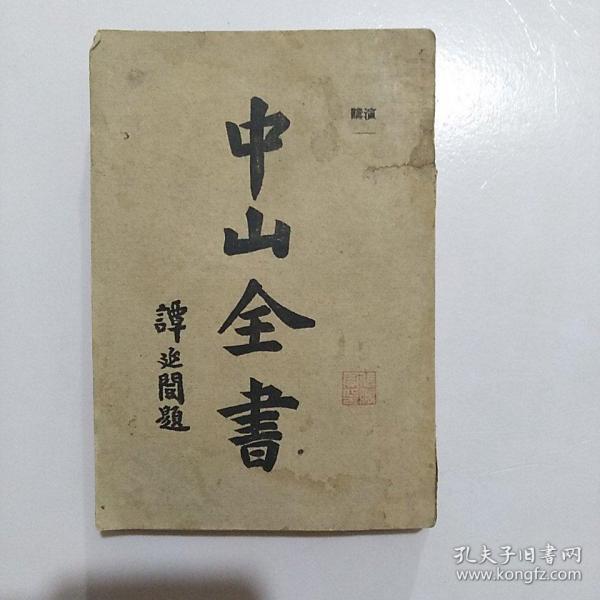 演講
一
中山全書
譚延闓題
孔夫子旧书网
www.kongfz.com